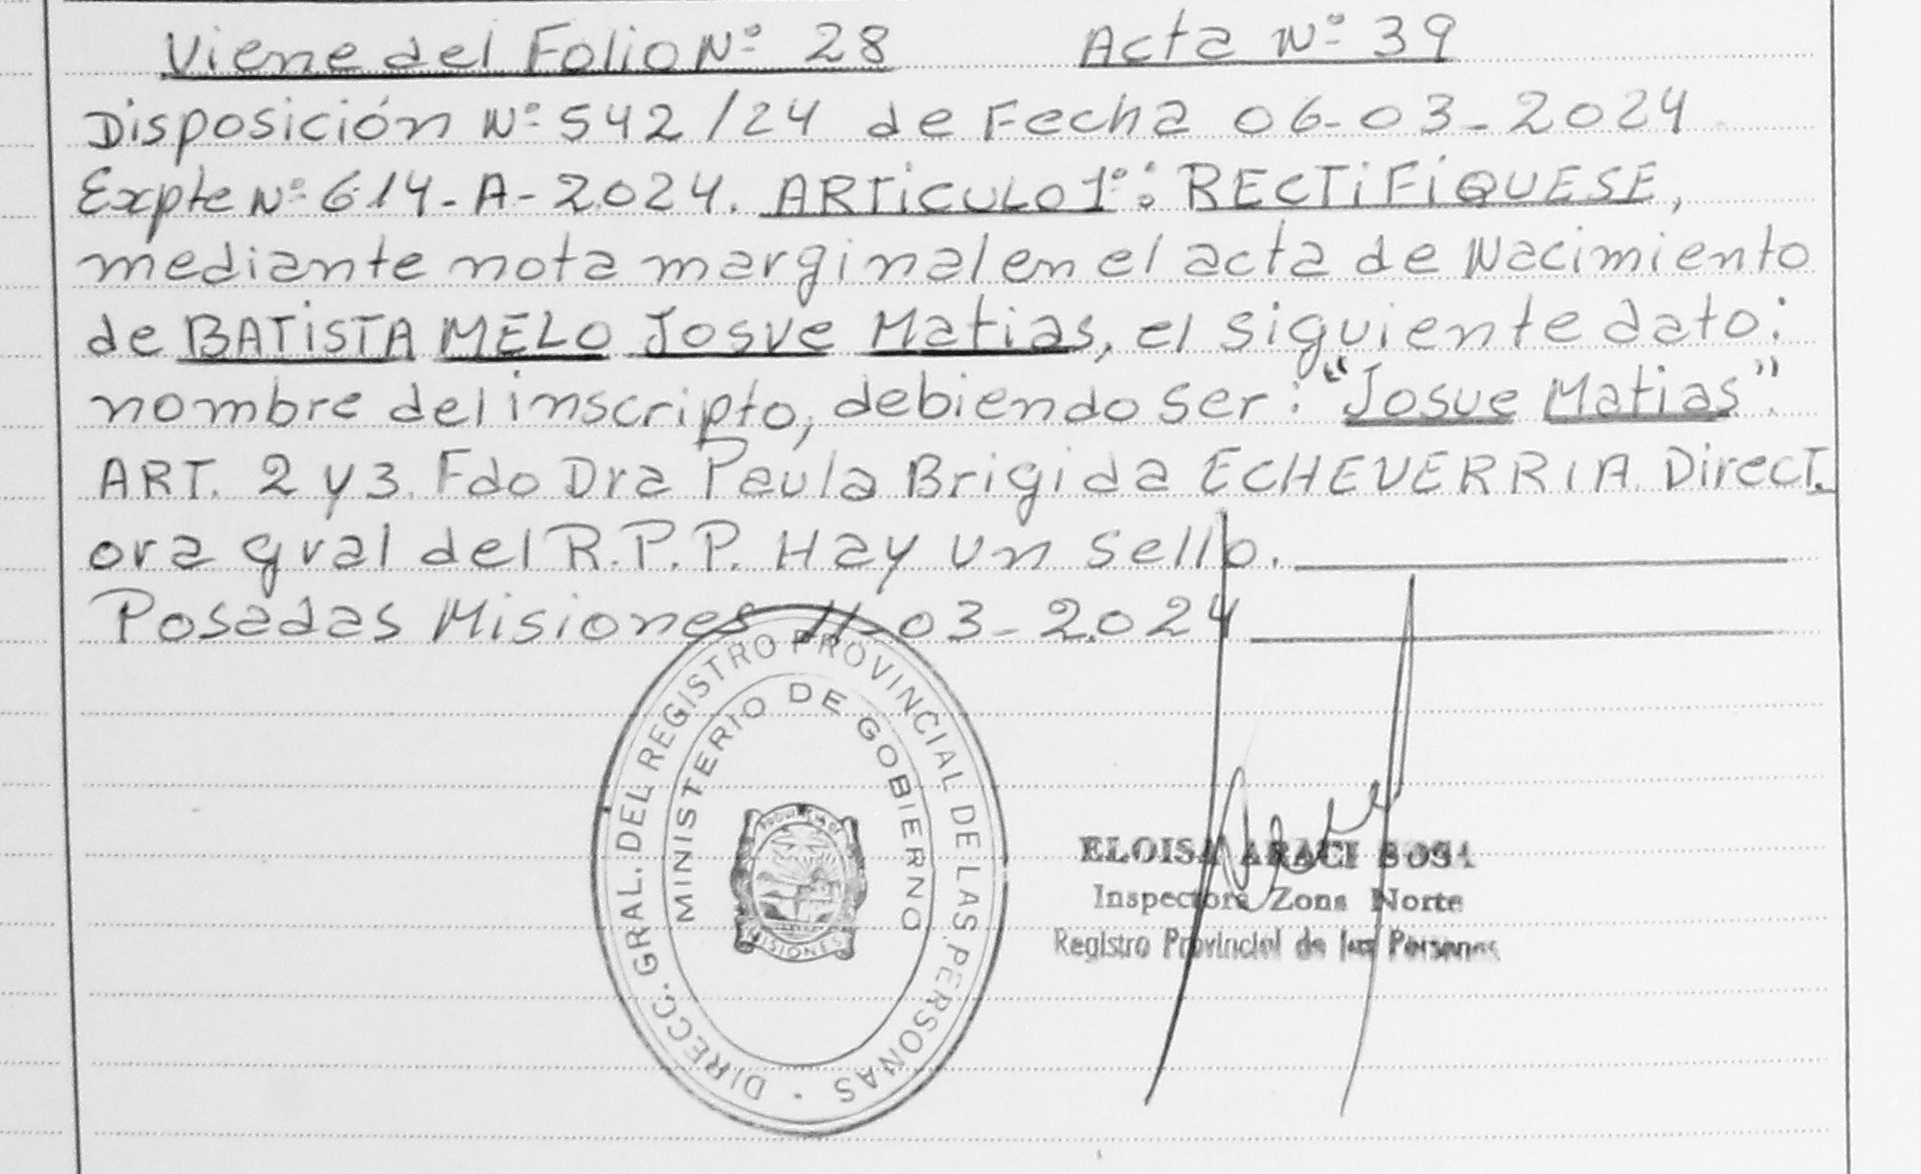 Viene del Folio Nº 28 Acta Nº 39
Disposición Nº 542/24 de Fecha 06-03-2024
Expte Nº 614-A-2024. ARTiCULO 1º: RECTiFiQUESE,
mediante nota marginal en el acta de Nacimiento
de BATiSTA MELO Josve Matias, el siguiente dato:
nombre del inscripto, debiendo ser: "Josue Matias".
ART. 2 y 3. Fdo Dra Paula Brigida ECHEVERRIA Direct.
ora gral del R.P.P. Hay un sello.
Posadas Misiones 11-03-2024
DIRECC. GRAL. DEL REGISTRO PROVINCIAL DE LAS PERSONAS
MINISTERIO DE GOBIERNO
PROVINCIA DE
MISIONES
ELOISA ARACI SOSA
Inspectora Zona Norte
Registro Provincial de las Personas